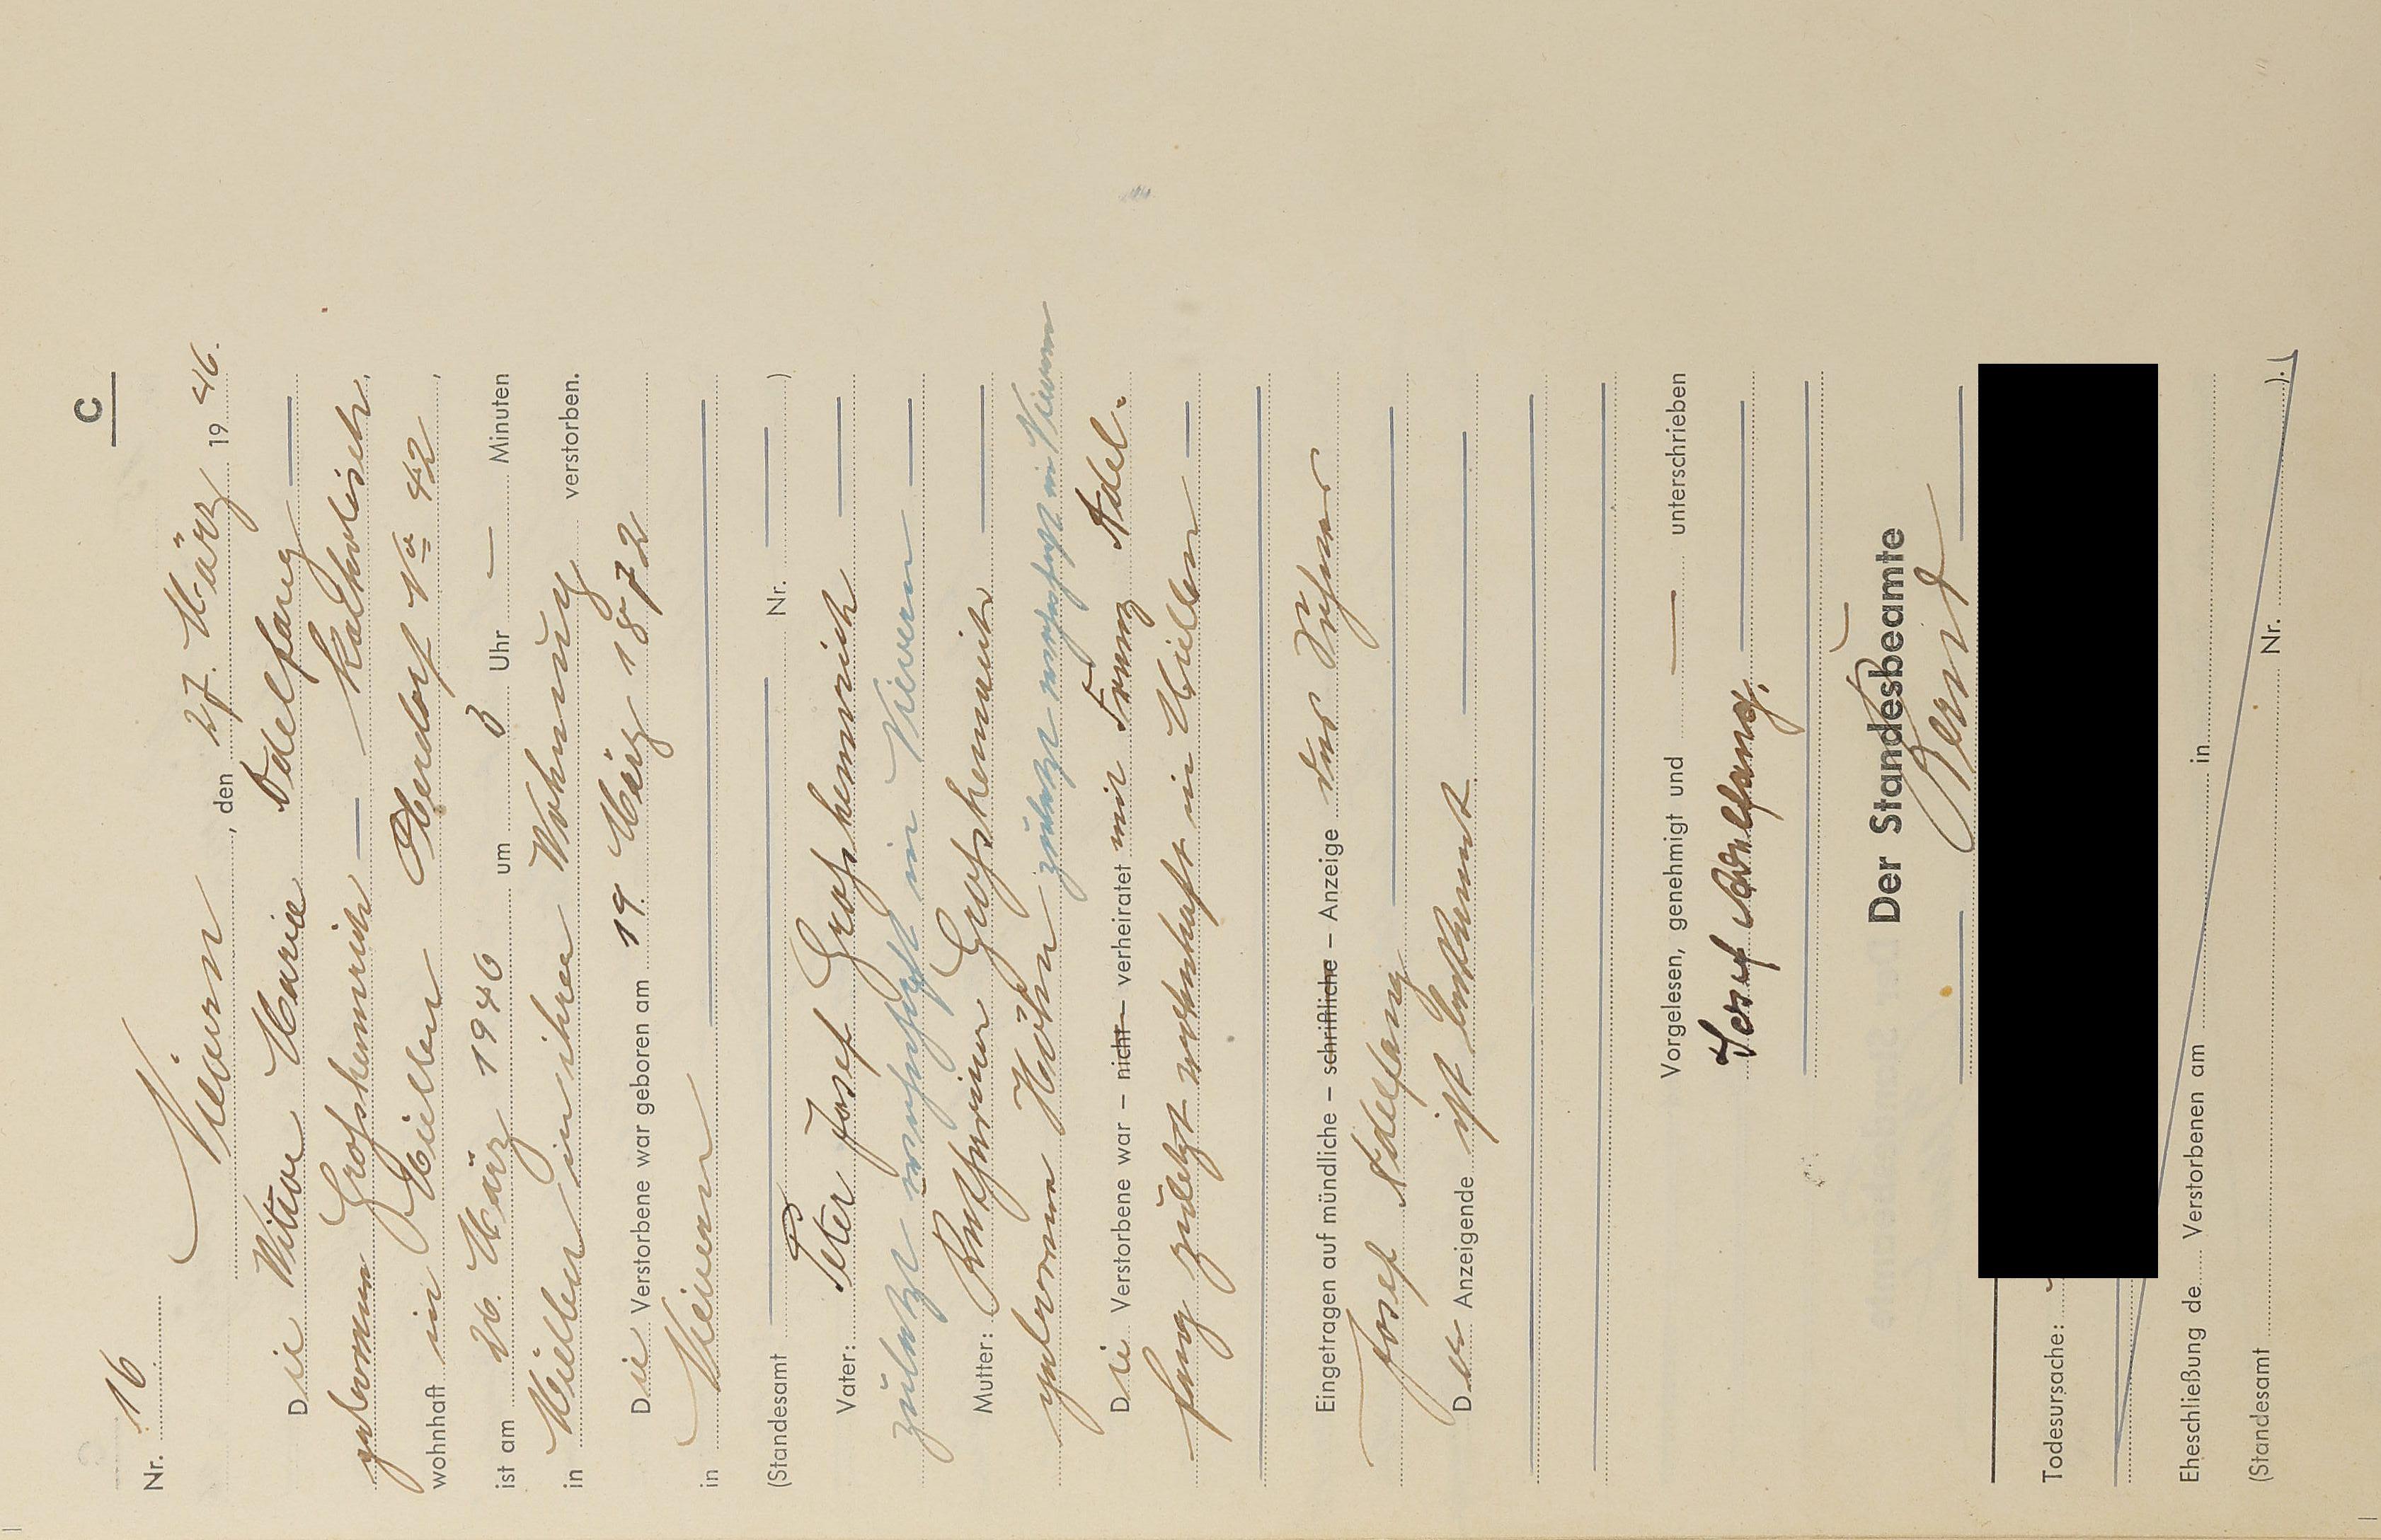 C
Nr. 16
Nievern, den 27. März 1946.
Die Witwe Marie Adelfang
geborenen Großhennrich — katholisch,
wohnhaft in Miellen Oberdorf No 42,
ist am 26. März 1946 um 3 Uhr — Minuten
in Miellen in ihrer Wohnung verstorben.
Die Verstorbene war geboren am 19. März 1872
in Nievern
(Standesamt Nr. )
Vater: Peter Josef Großhennrich
zuletzt wohnhaft in Nievern
Mutter: Katharina Großhennrich
geborene Höhn zuletzt wohnhaft in Nievern
Die Verstorbene war – nicht – verheiratet mit Franz Adel-
fang zuletzt wohnhaft in Miellen
Eingetragen auf mündliche – schriftliche – Anzeige des Sohnes
Josef Adelfang
Der Anzeigende ist bekannt.
Vorgelesen, genehmigt und — unterschrieben
Josef Adelfang.
Der Standesbeamte
Todesursache:
Eheschließung de Verstorbenen am in
(Standesamt Nr. ).